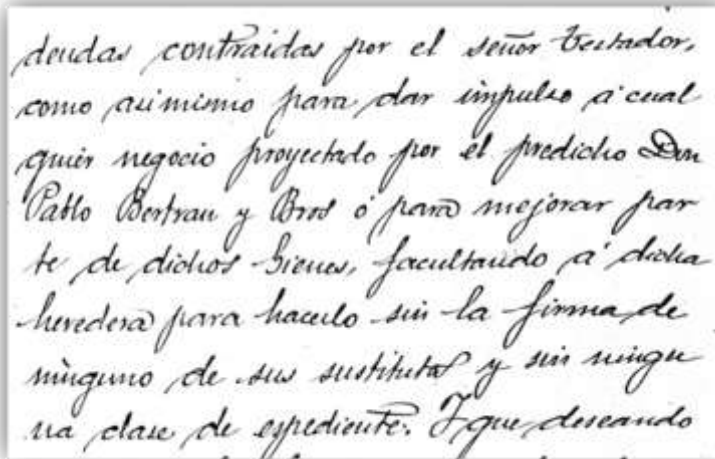 deudas contraidas por el señor testador,
como asimismo para dar impulso á cual
quier negocio proyectado por el predicho Don
Pablo Bertran y Bros ó para mejorar par
te de dichos bienes, facultando á dicha
heredera para hacerlo sin la firma de
ninguno de sus sustitutos y sin ningu
na clase de espediente. Y que deseando